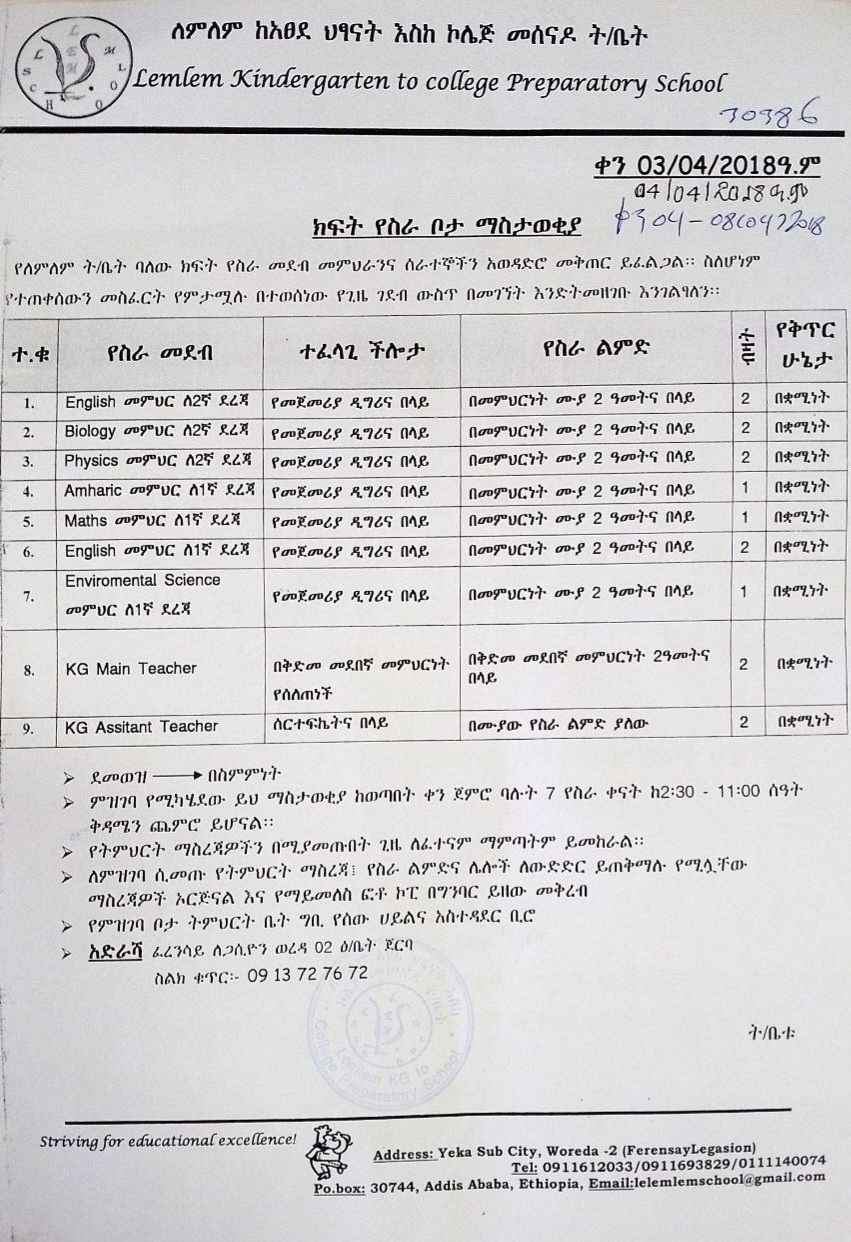 ለምለም ከአፀደ ህፃናት እስከ ኮሌጅ መሰናዶ ት/ቤት
Lemlem Kindergarten to college Preparatory School
30386
ቀን 03/04/2018ዓ.ም
04/04/2018ዓ.ም
ክፍት የስራ ቦታ ማስታወቂያ
የለምለም ት/ቤት ባለው ክፍት የስራ መደብ መምህራንና ሰራተኞችን አወዳድሮ መቅጠር ይፈልጋል። ስለሆነም
የተጠቀሰውን መስፈርት የምታሟሉ በተወሰነው የጊዜ ገደብ ውስጥ በመገኘት እንድትመዘገቡ እንገልፃለን።
ተ.ቁ የስራ መደብ ተፈላጊ ችሎታ የስራ ልምድ ብዛት የቅጥር ሁኔታ
1. English መምህር ለ2ኛ ደረጃ የመጀመሪያ ዲግሪና በላይ በመምህርነት ሙያ 2 ዓመትና በላይ 2 በቋሚነት
2. Biology መምህር ለ2ኛ ደረጃ የመጀመሪያ ዲግሪና በላይ በመምህርነት ሙያ 2 ዓመትና በላይ 2 በቋሚነት
3. Physics መምህር ለ2ኛ ደረጃ የመጀመሪያ ዲግሪና በላይ በመምህርነት ሙያ 2 ዓመትና በላይ 2 በቋሚነት
4. Amharic መምህር ለ1ኛ ደረጃ የመጀመሪያ ዲግሪና በላይ በመምህርነት ሙያ 2 ዓመትና በላይ 1 በቋሚነት
5. Maths መምህር ለ1ኛ ደረጃ የመጀመሪያ ዲግሪና በላይ በመምህርነት ሙያ 2 ዓመትና በላይ 1 በቋሚነት
6. English መምህር ለ1ኛ ደረጃ የመጀመሪያ ዲግሪና በላይ በመምህርነት ሙያ 2 ዓመትና በላይ 2 በቋሚነት
7. Enviromental Science መምህር ለ1ኛ ደረጃ የመጀመሪያ ዲግሪና በላይ በመምህርነት ሙያ 2 ዓመትና በላይ 1 በቋሚነት
8. KG Main Teacher በቅድመ መደበኛ መምህርነት የሰለጠነች በቅድመ መደበኛ መምህርነት 2ዓመትና በላይ 2 በቋሚነት
9. KG Assitant Teacher ሰርተፍኬትና በላይ በሙያው የስራ ልምድ ያለው 2 በቋሚነት
➢ ደመወዝ ⟶ በስምምነት
➢ ምዝገባ የሚካሄደው ይህ ማስታወቂያ ከወጣበት ቀን ጀምሮ ባሉት 7 የስራ ቀናት ከ2:30 - 11:00 ሰዓት
ቅዳሜን ጨምሮ ይሆናል።
➢ የትምህርት ማስረጃዎችን በሚያመጡበት ጊዜ ለፈተናም ማምጣትም ይመከራል።
➢ ለምዝገባ ሲመጡ የትምህርት ማስረጃ፤ የስራ ልምድና ሌሎች ለውድድር ይጠቅማሉ የሚሏቸው
ማስረጃዎች ኦርጅናል እና የማይመለስ ፎቶ ኮፒ በግንባር ይዘው መቅረብ
➢ የምዝገባ ቦታ ትምህርት ቤት ግቢ የሰው ሀይልና አስተዳደር ቢሮ
➢ አድራሻ ፈረንሳይ ለጋሲዮን ወረዳ 02 ዕ/ቤት ጀርባ
ስልክ ቁጥር፡- 09 13 72 76 72
ት/ቤቱ
College Preparatory School
Lemlem KG to
Striving for educational excellence!
Address: Yeka Sub City, Woreda -2 (FerensayLegasion)
Tel: 0911612033/0911693829/0111140074
Po.box: 30744, Addis Ababa, Ethiopia, Email:lelemlemschool@gmail.com